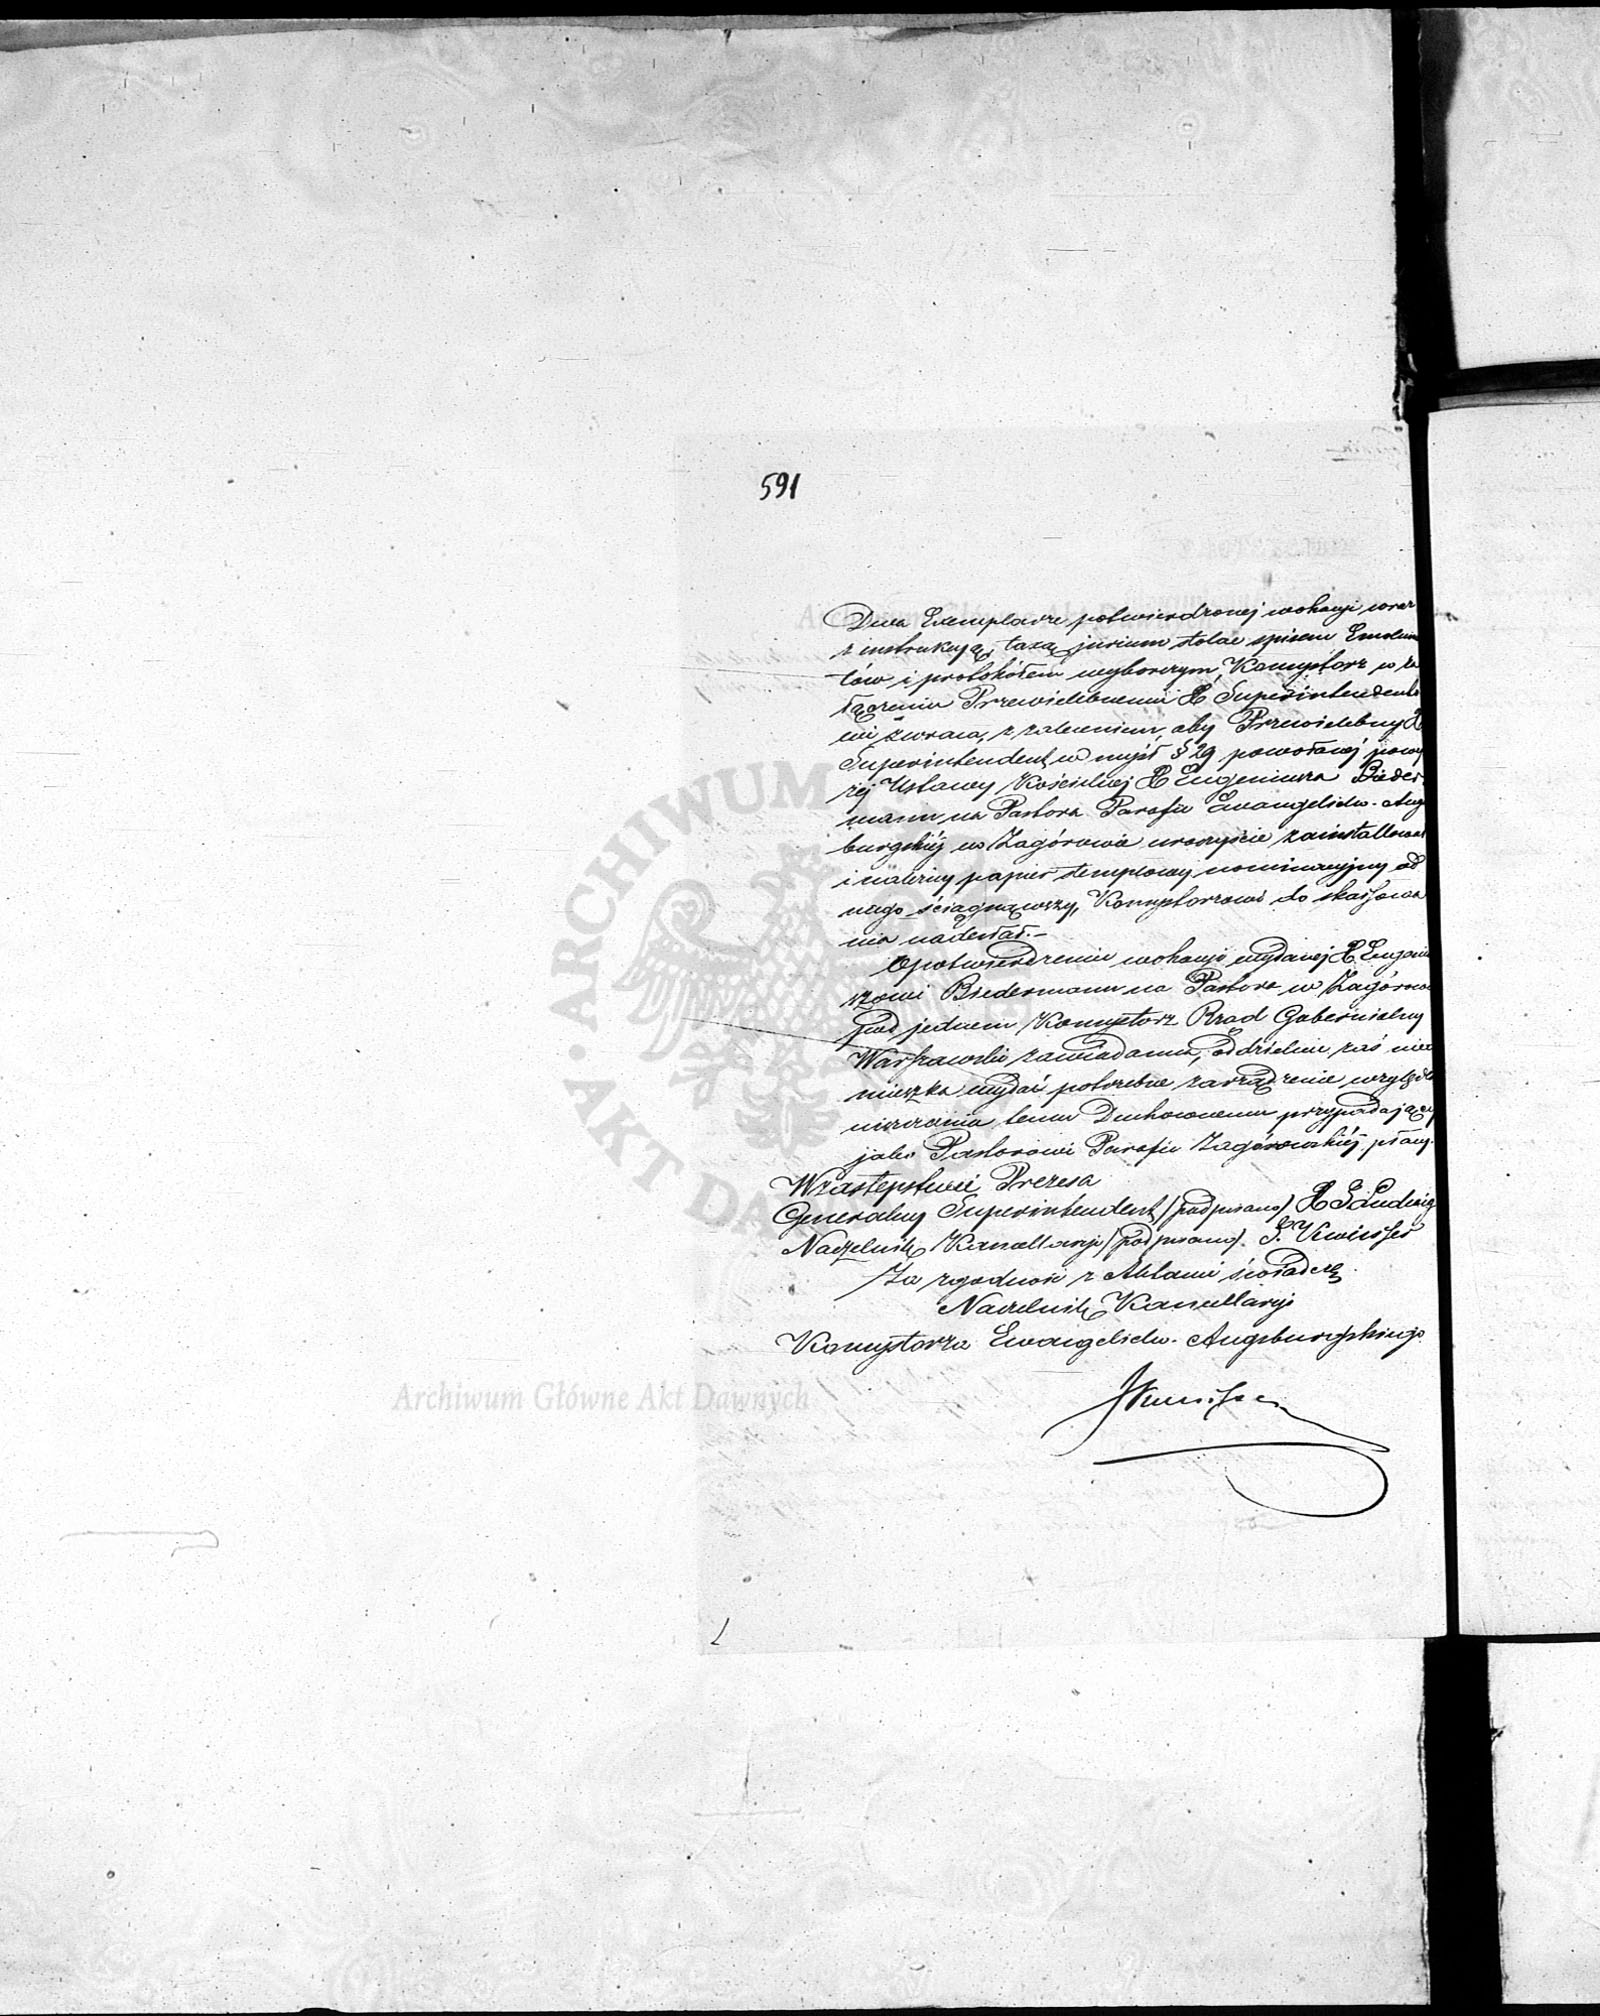 591
Dwa Exemplarze potwierdzonej wokacyi wraz
z instrukcyą, taxą jurium stolae spisem Emolum
tów i protokółem wyborczym, Konsystorz w za
łączeniu Przewielebnemu X Superintendento
wi zwraca, z zaleceniem, aby Przewielebny X
Superintendent w myśl § 29 powołanéj powy
żéj Ustawy Kościelnej X Eugeniusza Bieder
mann na Pastora Parafii Ewangelicko-Aug
burgskiéj w Zagórowie uroczyście zainstallował
i należny papier stemplowy nominacyjny od
niego ściągnąwszy, Konsystorzowi do skassowa
nia nadesłał.-
O potwierdzeniu wokacyi wydanej X Eugeniu
szowi Biedermann na Pastora w Zagórowie
pod jednem Konsystorz Rząd Gubernialny
Warszawski zawiadamia, oddzielnie zaś nie
mieszka wydać potrzebne zarządzenie względe
niszczenia temu Duchownemu przypadającej
jako Pastorowi Parafii Zagórowskiéj płacy.
W zastępstwie Prezesa
Generalny Superintendent (podpisano) X Ludwig
Naczelnik Kancellaryi (podpisano)
Za zgodność z Aktami świadczę
Naczelnik Kancellaryi
Konsystorza Ewangelicko-Augsburgskiego
Archiwum Główne Akt Dawnych
ARCHIWUM
AKT DA